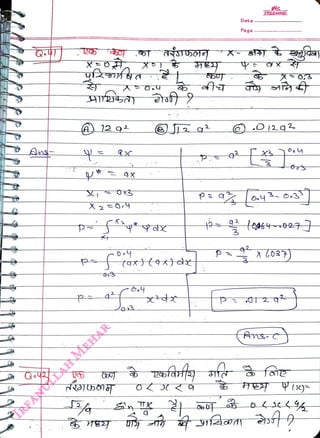 Date
Page
Q.41 एक कण का तरंगफलन x- अक्ष के अनुदिश
x=0 से x=1 के मध्य ψ = ax से
परिभाषित है। कण के x=0.3
से x=0.4 के बीच पाये जाने की
प्रायिकता होगी ?
Ⓐ 12a² Ⓑ √12 a² Ⓒ .012a²
Ans:- ψ = ax
ψ* = ax
x₁ = 0.3
x₂ = 0.4
P = ∫x₁^x₂ ψ* ψ dx
P = ∫0.3^0.4 (ax)(ax) dx
P = a² ∫0.3^0.4 x² dx
P = a² [x³/3]0.3^0.4
P = a²/3 [0.4³ - 0.3³]
P = a²/3 [.064 - .027]
P = a²/3 × (.037)
P = .012a²
Ans. C
Q.42 एक कण के एकविमीय गति के लिए
तरंगफलन 0 < x < a के मध्य ψ(x) =
√2/a sin πx/a है। कण के 0 < x < a/2
के मध्य पाये जाने की प्रायिकता होगी ?
IRFANULLAH MEHAR